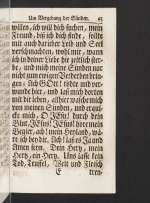 Um Vergebung der Sünden. 65
willen, ich will dich suchen, mein
Freund, biß ich dich finde, solte
mir auch darüber Leib und Seel
verschmachten, wohl mir, wann
ich in deiner Liebe hie zeitlich ster-
be, und mich meine Sünden nur
nicht zum ewigen Verderben brin-
gen! Ach GOtt! tödte und ver-
wunde hier, und laß mich dorten
mit dir leben, allhier wasche mich
von meinen Sünden, und erqui-
cke mich, O JEsu! durch dein
Blut, JEsus! JEsus! höre mein
Begier, ach! mein Heyland, wä-
re ich bey dir. Ach! laß es Ja und
Amen seyn. Dein Hertz, mein
Hertz, ein Hertz. Uns lasse kein
Tod, Teufel, Welt und Fleisch
E tren-